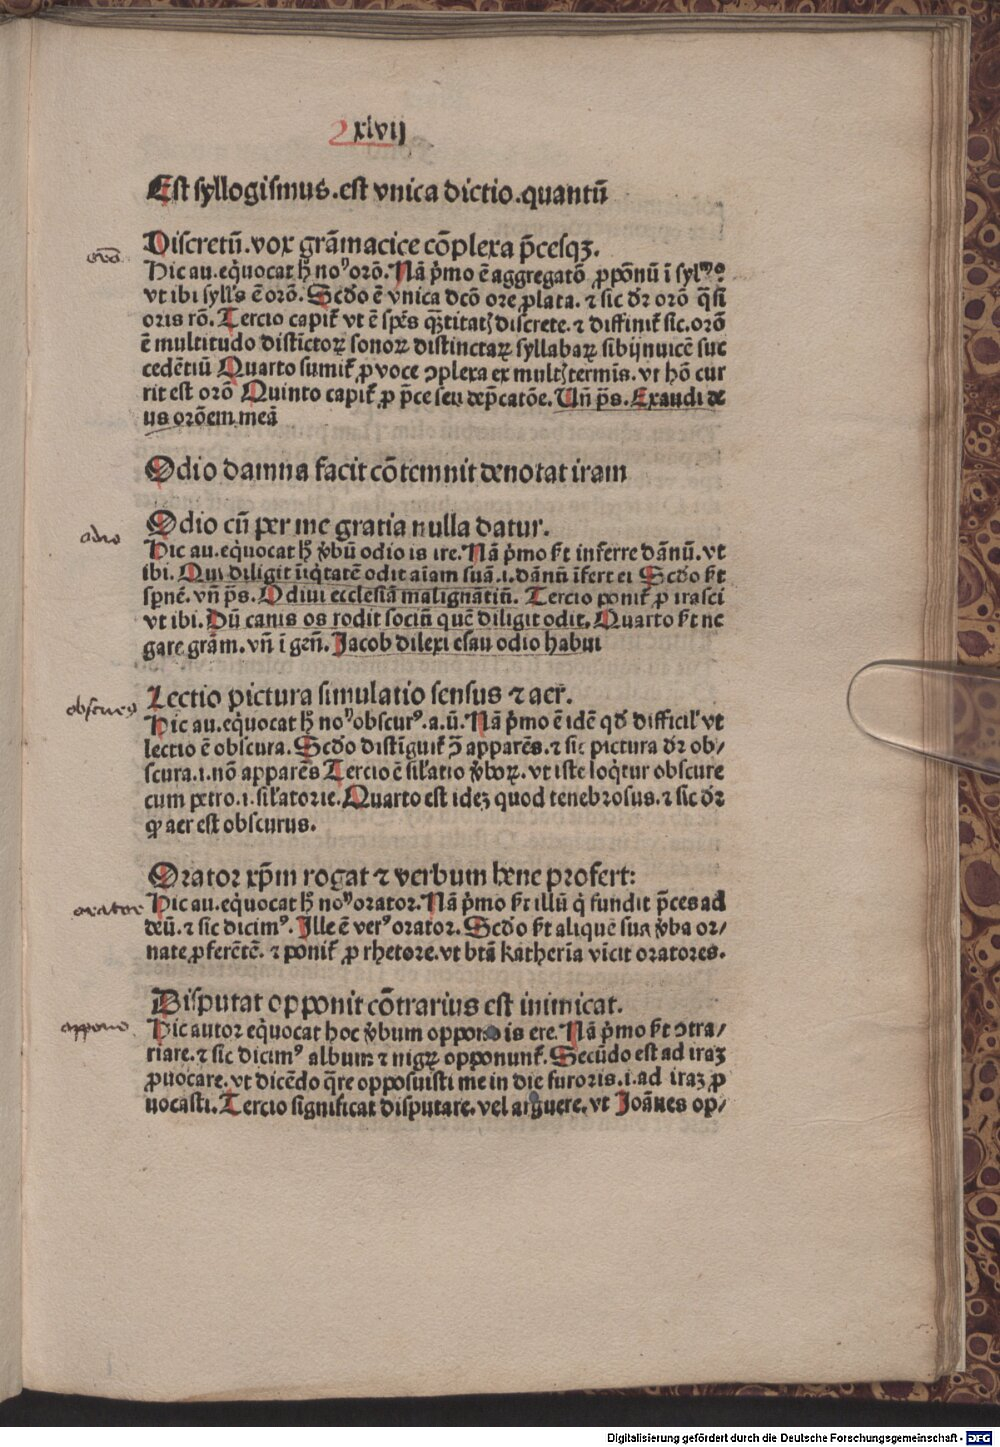 xlvij
Est syllogismus.est vnica dictio.quantū
Discretū.vox grāmacice cōplexa p̄cesqꝫ.
oro
Hic au.eq̇uocat h̥ noꝰ orō.Nā ṗmo ē aggregatō ꝓpōnū ī syl
vt ibi sylls ē orō.Scd̄o ē vnica dcō ore ꝓlata.⁊ sic dr̄ orō q̄si
oris rō.Tercio capit̄ vt ē spēs q̄ꝫtitatꝭ discrete.⁊ diffinit̄ sic.orō
ē multitudo distīctoꝝ sonoꝝ distinctaꝝ syllabaꝝ sibijnuicē suc
cedētiū Quarto sumit̄ ꝓ voce ↄplexa ex multꝭ termīs.vt hō cur
rit est orō Quinto capit̄ ꝓ p̄ce seu dep̄catōe.Un̄ ps̄.Exaudi de
us orōem meā
Odio damna facit cōtemnit denotat iram
Odio cū per me gratia nulla datur.
odio
Hic au.eq̇uocat h̥ v̇bū odio is ire.Nā ṗmo st̄ inferre dānū.vt
ibi.Qui diligit īiq̇tatē odit aīam suā.i.dānū īfert ei Scd̄o st̄
spnē.vn̄ ps̄.Odiui ecclesiā malignātiū.Tercio ponit̄ ꝓ irasci
vt ibi.Dū canis os rodit sociū quē diligit odit.Quarto st̄ ne
gare grām.vn̄ ī gen̄.Jacob dilexi esau odio habui
Lectio pictura simulatio sensus ⁊ aer.
obscurꝰ
Hic au.eq̇uocat h̥ noꝰ obscurꝰ.a.ū.Nā ṗmo ē idē qd̄ difficil' vt
lectio ē obscura.Scd̄o distīguit̄ ↄ̄ apparēs.⁊ sic pictura dr̄ ob/
scura.i.nō apparēs Tercio ē sil'atio v̇boꝝ.vt iste loq̇tur obscure
cum petro.i.sil'atorie.Quarto est ideꝫ quod tenebrosus.⁊ sic dr̄
ꝙ aer est obscurus.
Orator xp̄m rogat ⁊ verbum bene profert:
orator
Hic au.eq̇uocat h̥ noꝰ orator.Nā ṗmo st̄ illū q̇ fundit p̄ces ad
deū.⁊ sic dicimꝰ.Ille ē verꝰ orator.Scd̄o st̄ aliquē sua v̇ba or/
nate ꝓferētē.⁊ ponit̄ ꝓ rhetore.vt btā katherīa vicit oratores.
Disputat opponit cōtrarius est inimicat.
oppono
Hic autor eq̇uocat hoc v̇bum oppono is ere.Nā ṗmo st̄ ↄtra/
riare.⁊ sic dicimꝰ album ⁊ nigꝝ opponunt̄.Secūdo est ad iraꝫ
ꝓuocare.vt dicēdo q̄re opposuisti me in die furoris.i.ad iraꝫ ꝓ
uocasti.Tercio significat disputare.vel arguere.vt Joānes op/
Digitalisierung gefördert durch die Deutsche Forschungsgemeinschaft - DFG